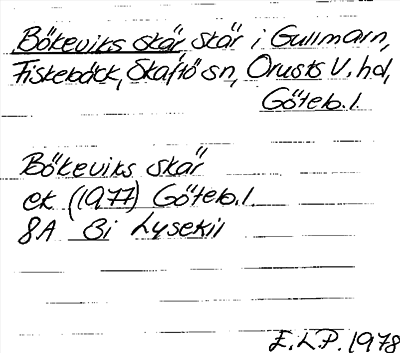 Bökeviks skär, skär i Gullmarn,
Fiskebäck, Skaftö sn, Orusts V. hd,
Göteb. l.
Bökeviks skär
ek (1977) Göteb. l.
8A 3i Lysekil
E. L. P. 1978